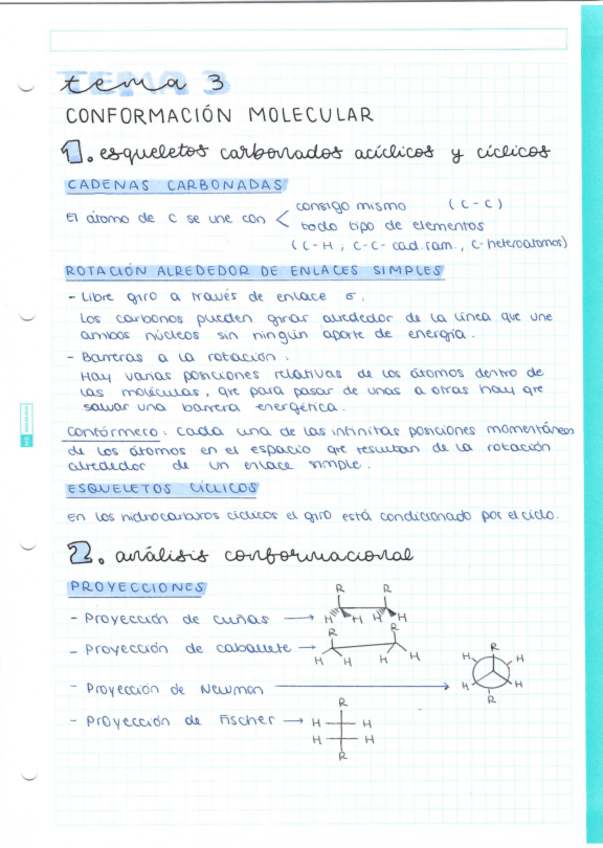 tema 3
CONFORMACIÓN MOLECULAR
1. esqueletos carbonados acíclicos y cíclicos
CADENAS CARBONADAS
El átomo de C se une con < consigo mismo (C-C)
todo tipo de elementos
(C-H, C-C-cad.ram., C-heteroátomos)
ROTACIÓN ALREDEDOR DE ENLACES SIMPLES
- Libre giro a través de enlace σ.
Los carbonos pueden girar alrededor de la línea que une
ambos núcleos sin ningún aporte de energía.
- Barreras a la rotación:
Hay varias posiciones relativas de los átomos dentro de
las moléculas, que para pasar de unas a otras hay que
salvar una barrera energética.
Confórmero: Cada una de las infinitas posiciones momentáneas
de los átomos en el espacio que resultan de la rotación
alrededor de un enlace simple.
ESQUELETOS CÍCLICOS
En los hidrocarburos cíclicos el giro está condicionado por el ciclo.
2. análisis conformacional
PROYECCIONES
- Proyección de cuñas →
R R
H H H H
- Proyección de caballete →
R R
H H H H
- Proyección de Newman →
R
H H
H H
R
- Proyección de Fischer →
R
H H
H H
R